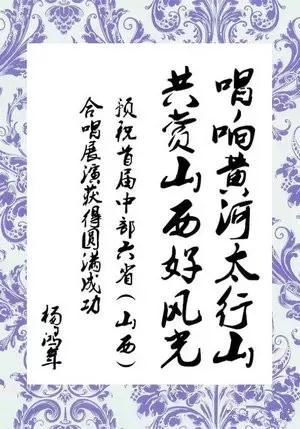 唱响黄河太行山
共赏山西好风光
预祝首届中部六省(山西)
合唱展演获得圆满成功
杨鸿年